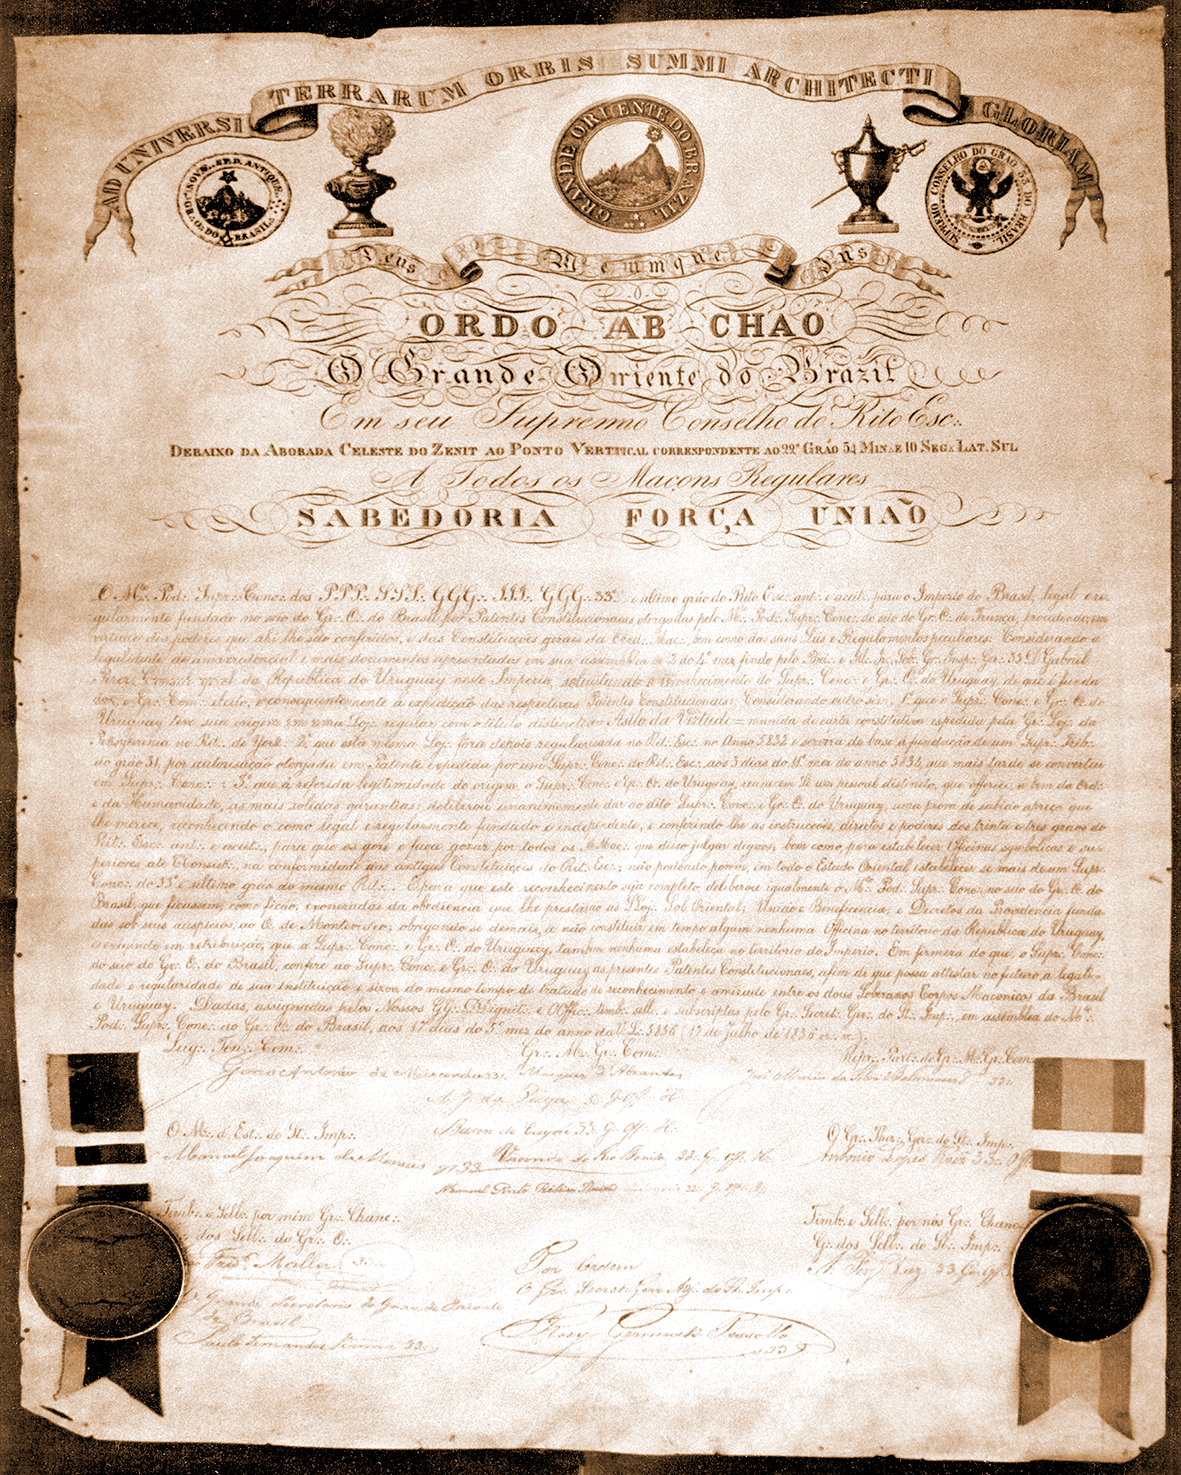 AD UNIVERSI TERRARUM ORBIS SUMMI ARCHITECTI GLORIAM
GRANDE ORIENTE DO BRAZIL
SUPREMO CONSELHO DO GRAO 33 DO BRASIL
Deus Meumque Jus
ORDO AB CHAO
O Grande Oriente do Brazil
Em seu Supremo Conselho do Rito Esc∴
DEBAIXO DA ABOBADA CELESTE DO ZENIT AO PONTO VERTICAL CORRESPONDENTE AO 22º GRÁO 54 MIN∴ E 10 SEG∴ LAT. SUL
A Todos os Maçons Regulares
SABEDORIA FORÇA UNIAÕ
O Mᵗᵒ∴ Pod∴ Supr∴ Conc∴ dos PPP∴ SSS∴ GGG∴ III∴ GGG∴ 33∴ e ultimo gráo do Rito Esc∴ ant∴ e aceit∴ para o Imperio do Brasil, legal e re-
gularmente fundado no seio do Gr∴ O∴ do Brasil por Patentes Constitucionaes outorgadas pelo Mᵗᵒ∴ Pod∴ Supr∴ Conc∴ do seio do Gr∴ O∴ de França, procedendo em
virtude dos poderes que ahi lhe são conferidos, e das Constituições geraes da Ord∴ Mac∴, bem como das suas Leis e Regulamentos peculiares: Considerando a
legalidade da credencial e mais documentos apresentados em sua assembléa a 2 do 4º mez findo pelo Gr∴ Insp∴ Ger∴ 33 D. Gabriel
Perez, Consul geral da Republica do Uruguay neste Imperio, solicitando o reconhecimento do Supr∴ Conc∴ e Gr∴ O∴ do Uruguay, de que é funda-
dor, e Gr∴ Com∴ eleito, e consequentemente a expedição das respectivas Patentes Constitucionaes: Considerando outro sim, 1º que o Supr∴ Conc∴ e Gr∴ O∴ do
Uruguay teve sua origem em uma Loj∴ regular com o titulo distinctivo = Asilo da Virtude = munida de carta constitutiva expedida pela Gr∴ Loj∴ da
Pensylvania no Rit∴ de York: 2º que esta mesma Loj∴ fôra depois regularisada no Rit∴ Esc∴ no Anno 5832 e servira de base á fundação de um Supr∴ Trib∴
do gráo 31, por autorisação outorgada em Patente expedida por um Supr∴ Conc∴ do Rit∴ Esc∴ aos 3 dias do mez do anno 5854, que mais tarde se converteu
em Supr∴ Conc∴: e 3º que á referida legitimidade de origem, o Supr∴ Conc∴ e Gr∴ O∴ do Uruguay, reunem um pessoal distincto, que offerece, a bem da Ord∴
e da Humanidade, as mais solidas garantias: deliberou unanimemente dar ao dito Supr∴ Conc∴ e Gr∴ O∴ do Uruguay, uma prova de subido apreço que
lhe merece, reconhecendo-o como legal e regularmente fundado e independente, e conferindo-lhe as instrucções, direitos e poderes dos trinta e tres graos do
Rit∴ Esc∴ ant∴ e aceit∴, para que os gose e faça gozar por todos os MMac∴ que disso julgar dignos; bem como, para estabelecer Officinas symbolicas e su-
periores até Consist∴ na conformidade das antigas Constituições do Rit∴ Esc∴; não podendo porem, em todo o Estado Oriental estabelecer-se mais de um Supr∴
Conc∴ do 33º e ultimo gráo do mesmo Rit∴. E para que este reconhecimento seja completo, deliberou igualmente o Mᵗᵒ∴ Pod∴ Supr∴ Conc∴ no seio do Gr∴ O∴ do
Brasil, que ficassem, como ficão, exoneradas da obediencia que lhe prestavão as LLoj∴ Sol Oriental; União e Beneficencia; e Decretos da Providencia funda-
das sob seus auspicios, ao O∴ de Montevideo; obrigando-se demais, a não constituir em tempo algum nenhuma Officina no territorio da Republica do Uruguay,
exigindo em retribuição, que o Supr∴ Conc∴ e Gr∴ O∴ do Uruguay, tambem nenhuma estabeleça no territorio do Imperio. Em firmeza do que, o Supr∴ Conc∴
do seio do Gr∴ O∴ do Brasil, confere ao Supr∴ Conc∴ e Gr∴ O∴ do Uruguay as presentes Patentes Constitucionaes, afim de que possa attestar no futuro a legali-
dade e regularidade de sua instituição e sirva do mesmo tempo de tratado de reconhecimento e amizade entre os dous Soberanos Corpos Maconicos do Brasil
e Uruguay. Dadas, assignadas pelos Nossos GG∴ DDignit∴ e OOffic∴ timb∴ sell∴ e subscriptas pelo Gr∴ Secret∴ Ger∴ do St∴ Imp∴, em assembléa do Mᵗᵒ∴
Pod∴ Supr∴ Conc∴ do Gr∴ O∴ do Brasil, aos 17 dias do 5º mez do anno da V∴ L∴ 5856 (17 de Julho de 1856 e∴ v∴)
Lug∴ Ten∴ Com∴ Gr∴ M∴ Gr∴ Com∴ Repr∴ Part∴ do Gr∴ M∴ Gr∴ Com∴
Antonio 33∴ Marquez d'Abrantes José Maria da Silva 33∴
Gr∴ Off∴ H∴
O M∴ d'Est∴ do St∴ Imp∴ Barão de 33 G∴ Off∴ H∴ O Gr∴ Thez∴ Ger∴ do St∴ Imp∴
Manoel Joaquim de Menezes gr 33 Visconde do Rio Bonito 33 G∴ Off∴ H∴ Antonio 33∴ Off
Manoel Pinto
Timb∴ e Sell∴ por mim Gr∴ Chanc∴ Timb∴ e Sell∴ por nós Gr∴ Chanc∴
dos Sell∴ do Gr∴ O∴ G∴ dos Sell∴ do St∴ Imp∴
Fredº Por Ordem
O Grande Secretario do Grande Oriente O Gr∴ Secret∴ Ger∴ do St∴ Imp∴
do Brasil
Paulo Fernandes 33∴